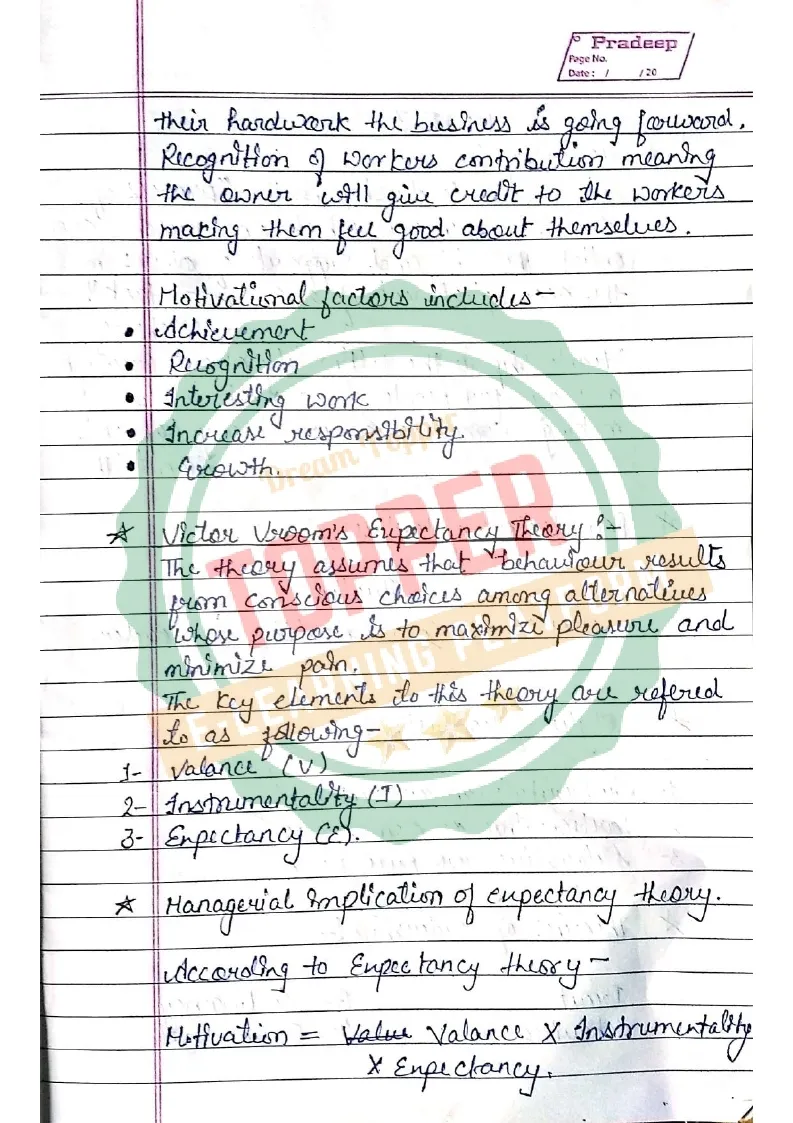 Pradeep
Page No.
Date: / /20
their hardwork the business is going forward.
Recognition of workers contribution meaning
the owner will give credit to the workers
making them feel good about themselves.
Motivational factors includes-
• Achievement
• Recognition
• Interesting work
• Increase responsibility.
• Growth.
Dream Topper
TOPPER
E-LEARNING PLATFORM
☆ Victor Vroom's Expectancy Theory :-
The theory assumes that behaviour results
from conscious choices among alternatives
whose purpose is to maximize pleasure and
minimize pain.
The key elements to this theory are refered
to as following-
1- Valance (V)
2- Instrumentality (I)
3- Expectancy (E).
☆ Managerial Implication of expectancy theory.
According to Expectancy theory -
Motivation = Value Valance X Instrumentality
X Expectancy.